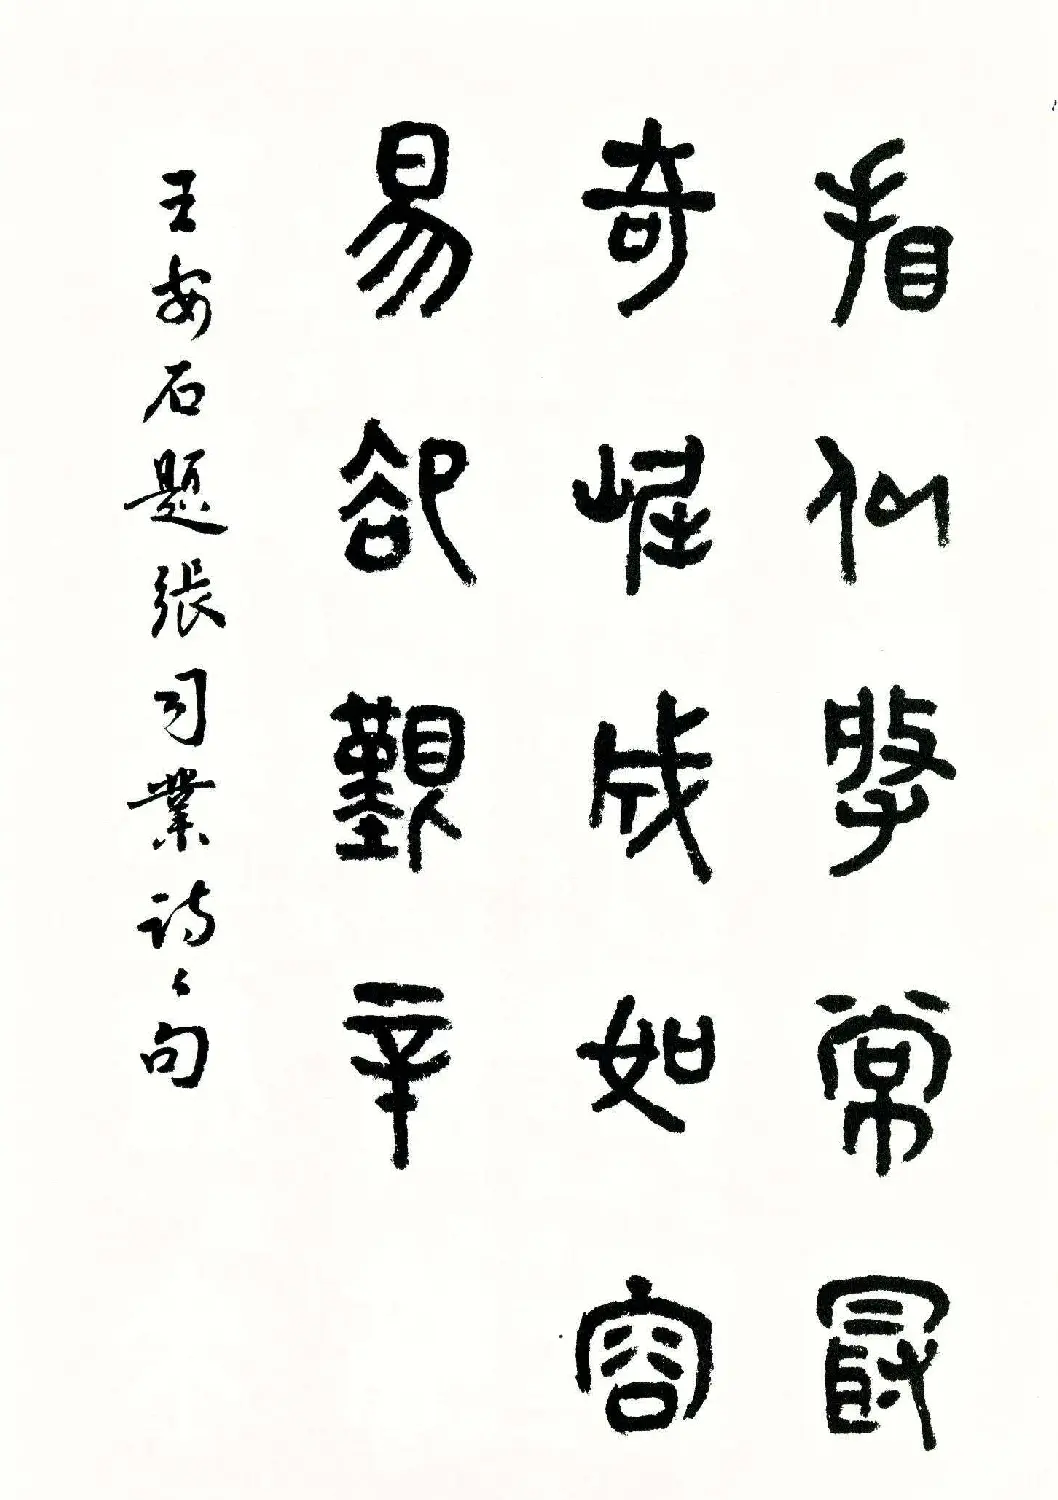 看似尋常最
奇崛成如容
易卻艱辛
王安石題張司業詩之句